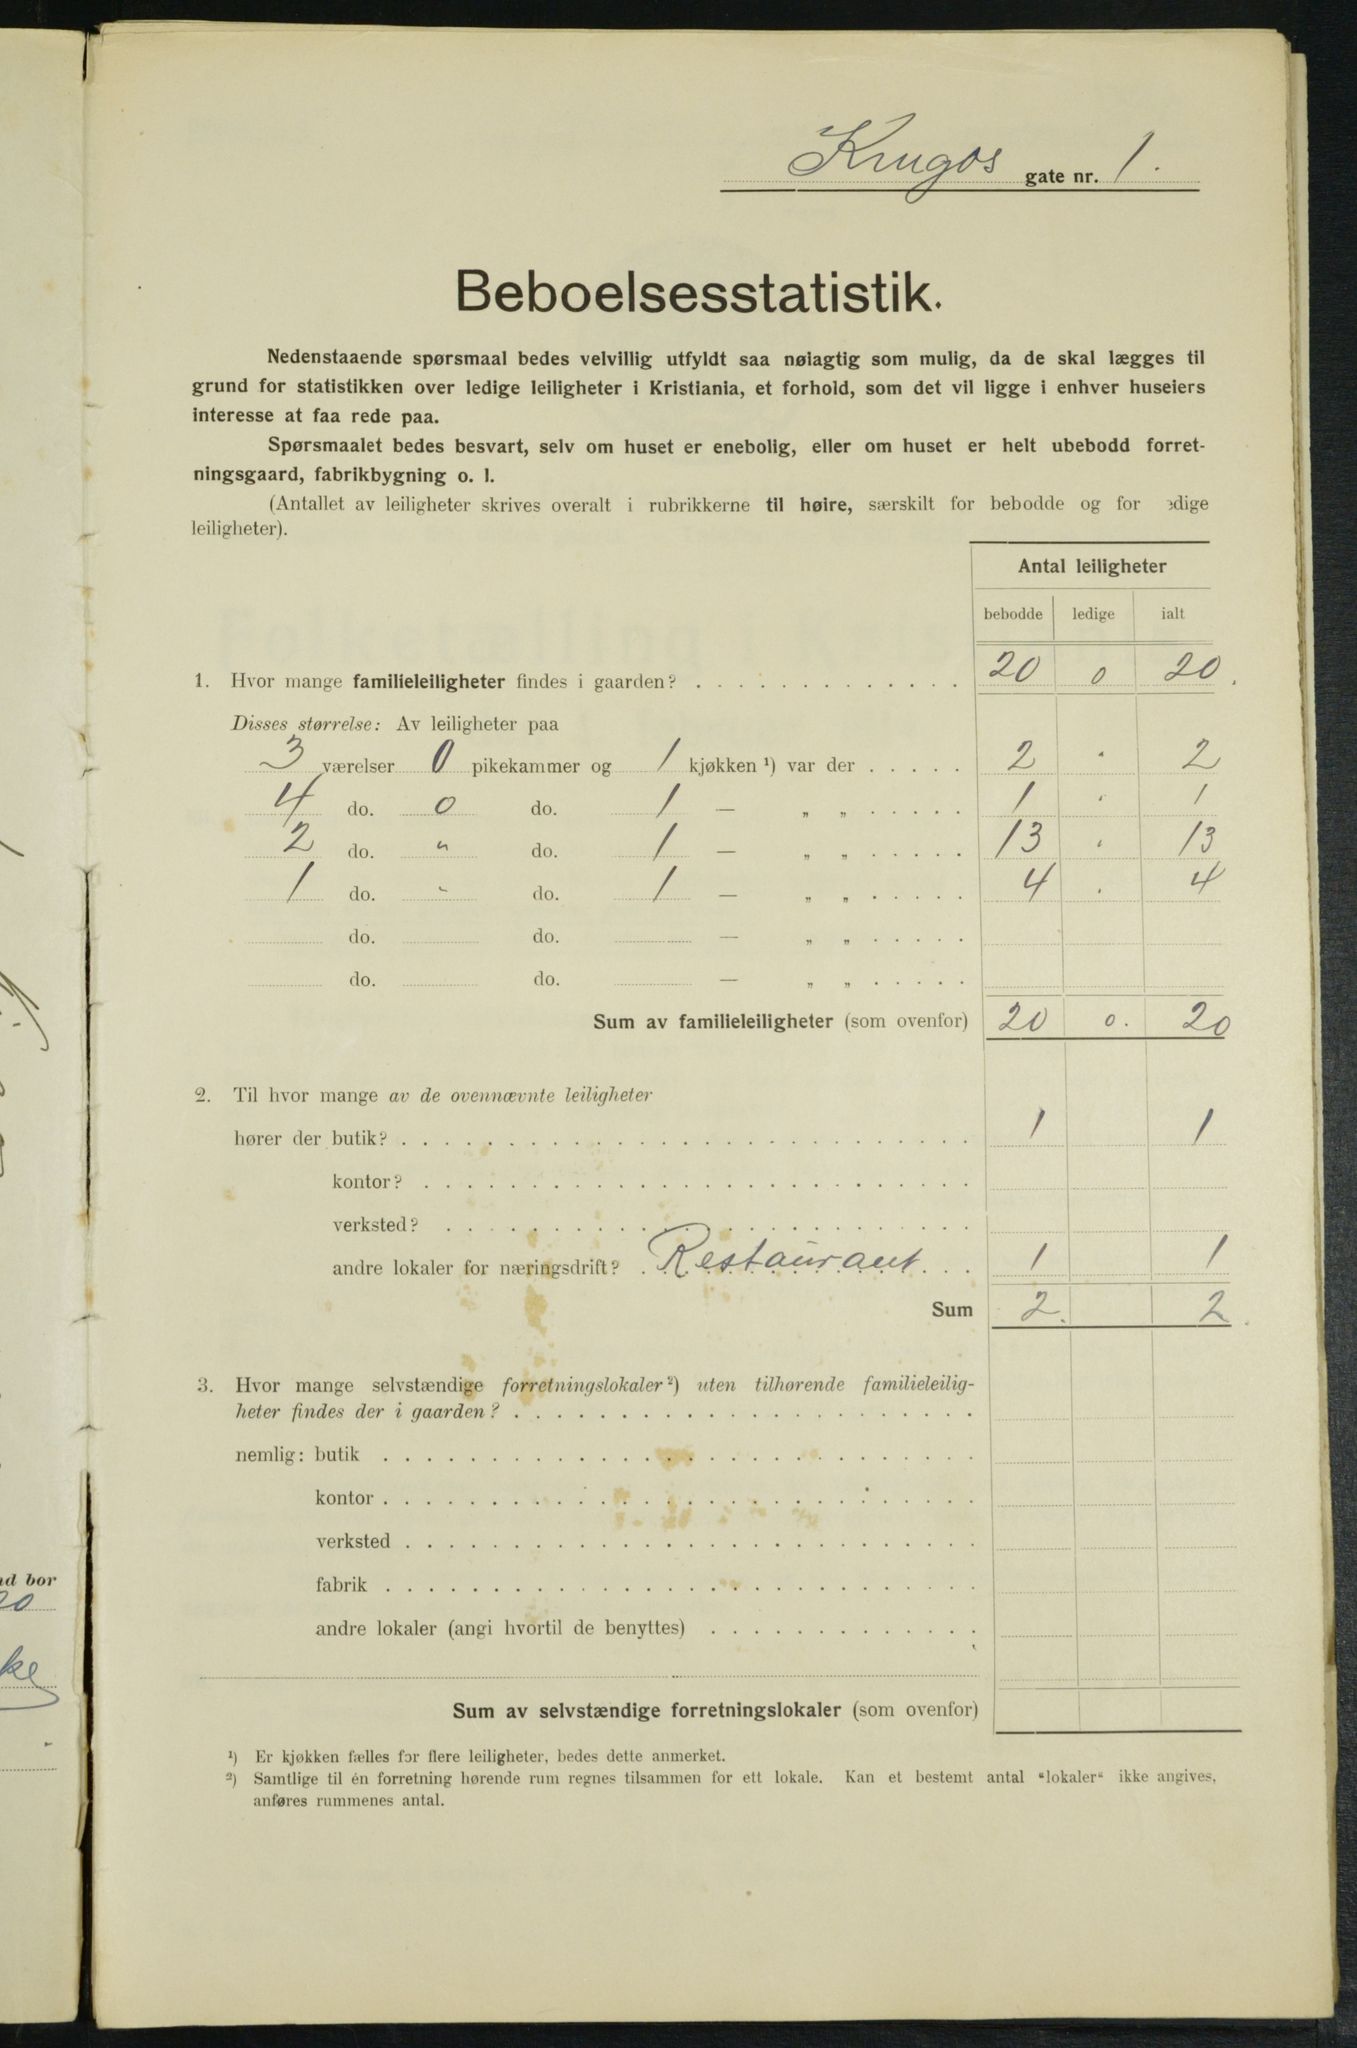 Krugos gate nr. 1.
Beboelsesstatistik.
Nedenstaaende spørsmaal bedes velvillig utfyldt saa nøiagtig som mulig, da de skal lægges til
grund for statistikken over ledige leiligheter i Kristiania, et forhold, som det vil ligge i enhver huseiers
interesse at faa rede paa.
Spørsmaalet bedes besvart, selv om huset er enebolig, eller om huset er helt ubebodd forret-
ningsgaard, fabrikbygning o. l.
(Antallet av leiligheter skrives overalt i rubrikkerne til høire, særskilt for bebodde og for edige
leiligheter).
Antal leiligheter
bebodde ledige ialt
1. Hvor mange familieleiligheter findes i gaarden? 20 0 20.
Disses størrelse: Av leiligheter paa
3 værelser 0 pikekammer og 1 kjøkken ¹) var der 2 " 2
4 do. 0 do. 1 — „ „ 1 " 1
2 do. " do. 1 — „ „ 13 " 13
1 do. " do. 1 — „ „ 4 . 4
do. do. — „ „
do. do. — „ „
Sum av familieleiligheter (som ovenfor) 20 0. 20
2. Til hvor mange av de ovennævnte leiligheter
hører der butik? 1 1
kontor?
verksted?
andre lokaler for næringsdrift? Restaurant 1 1
Sum 2. 2.
3. Hvor mange selvstændige forretningslokaler ²) uten tilhørende familieleilig-
heter findes der i gaarden?
nemlig: butik
kontor
verksted
fabrik
andre lokaler (angi hvortil de benyttes)
Sum av selvstændige forretningslokaler (som ovenfor)
¹) Er kjøkken fælles for flere leiligheter, bedes dette anmerket.
²) Samtlige til én forretning hørende rum regnes tilsammen for ett lokale. Kan et bestemt antal “lokaler“ ikke angives,
anføres rummenes antal.